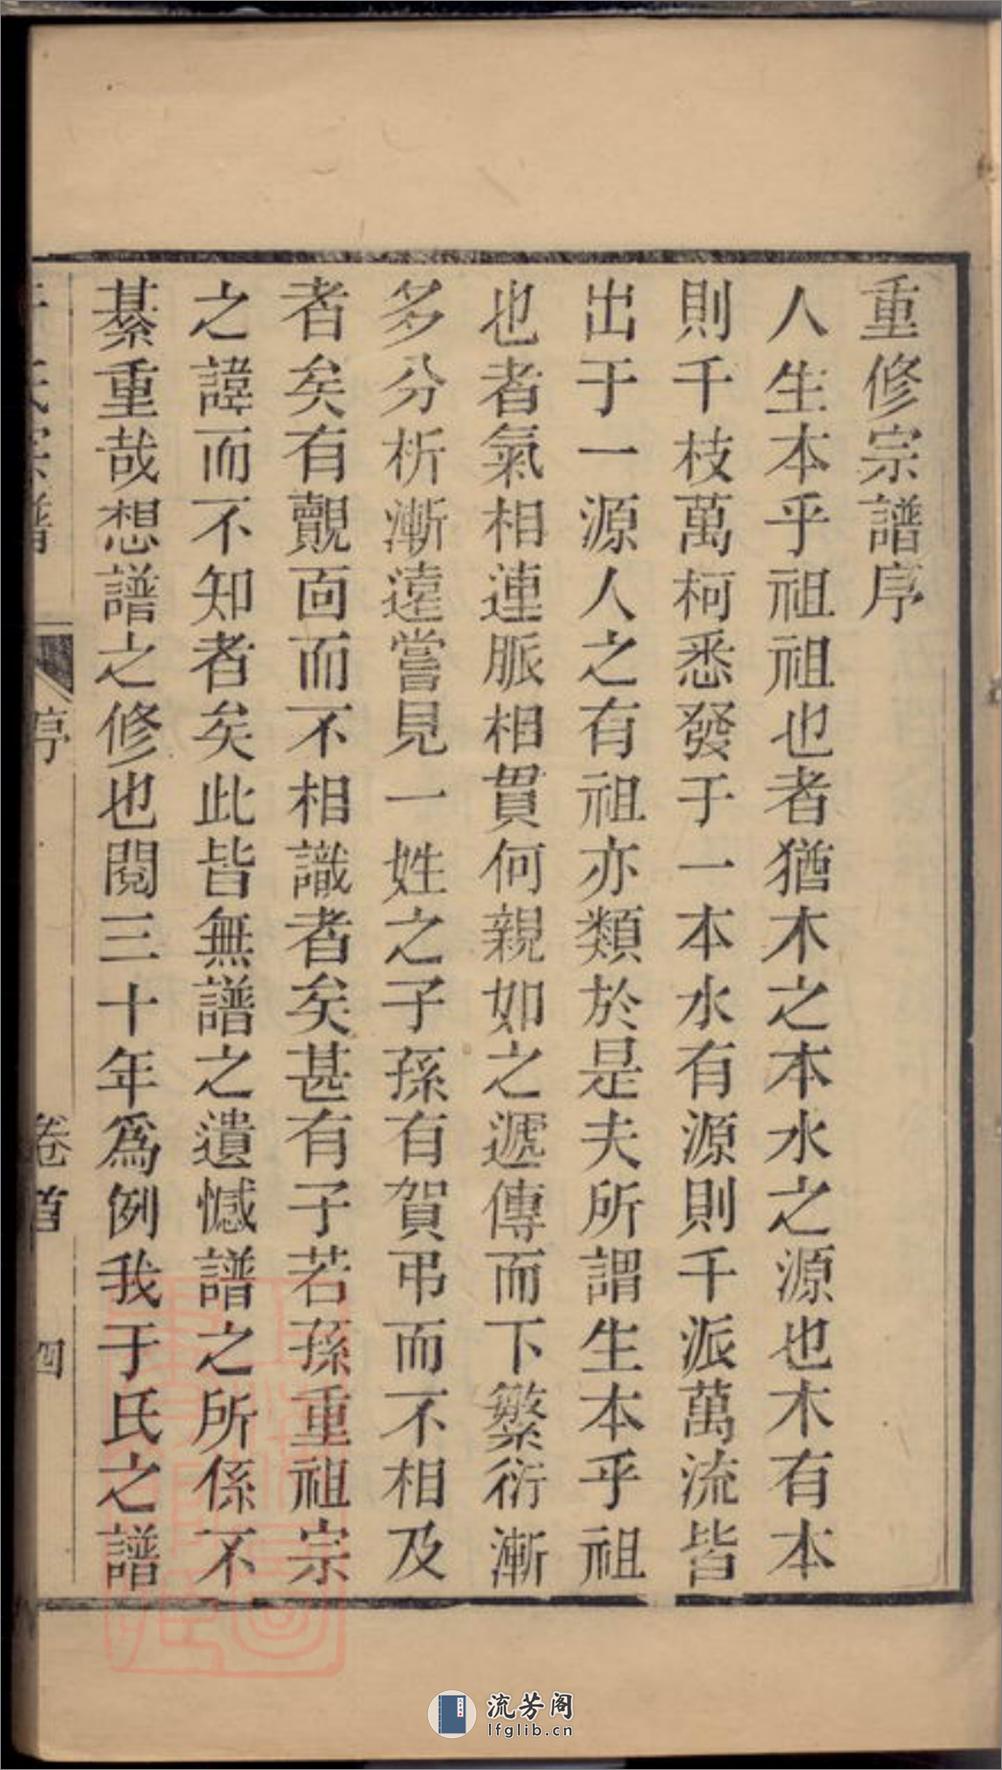 重修宗譜序
人生本乎祖祖也者猶木之本水之源也木有本
則千枝萬柯悉發于一本水有源則千派萬流皆
出于一源人之有祖亦類於是夫所謂生本乎祖
也者氣相連脈相貫何親如之遞傳而下繁衍漸
多分析漸遠嘗見一姓之子孫有賀弔而不相及
者矣有覿面而不相識者矣甚有子若孫重祖宗
之諱而不知者矣此皆無譜之遺憾譜之所係不
綦重哉想譜之修也閱三十年為例我于氏之譜
于氏宗譜
序
卷首
四
流芳阁
lfglib.cn